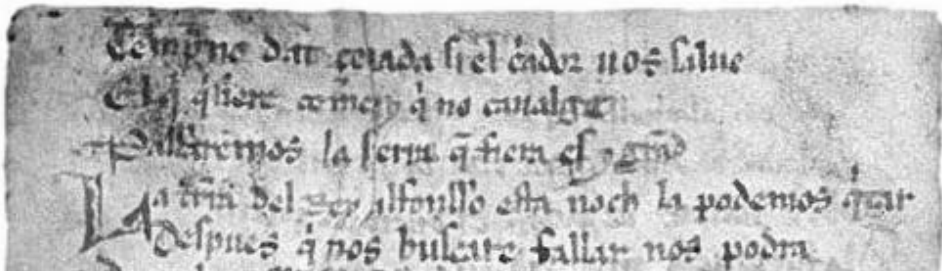 Temp̃no dat ceuada si el c̉ador uos salue
El q̉ q̉siere comer ⁊ q̉ no caualge
Passaremos la sierra q̃ fiera es ⁊ grãd
La tr̃ra del Rey alfonsso esta noch la podemos q̉tar
Despues q̉ nos buscare fallar nos podra